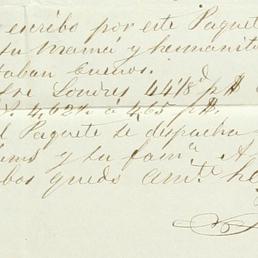 escribo por este Paquete
su Mamá y hermanit
taban buenos.
re Londres 44 1/8 d p$
4,62½ á 4,65 p$.
l Paquete se despacha
mo y su fama. A
bos quedo amo.